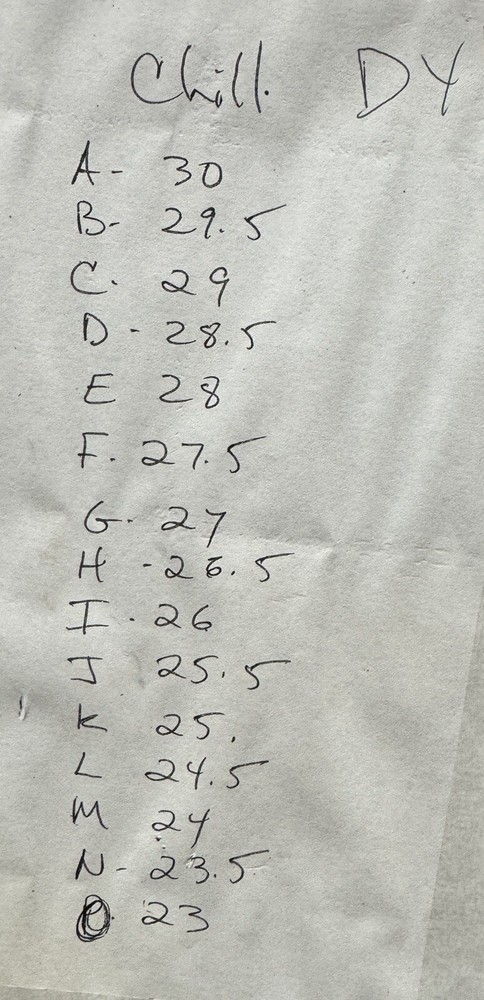 Chill. DY
A - 30
B- 29.5
C. 29
D - 28.5
E 28
F. 27.5
G. 27
H - 26.5
I. 26
J 25.5
K 25.
L 24.5
M 24
N - 23.5
O. 23